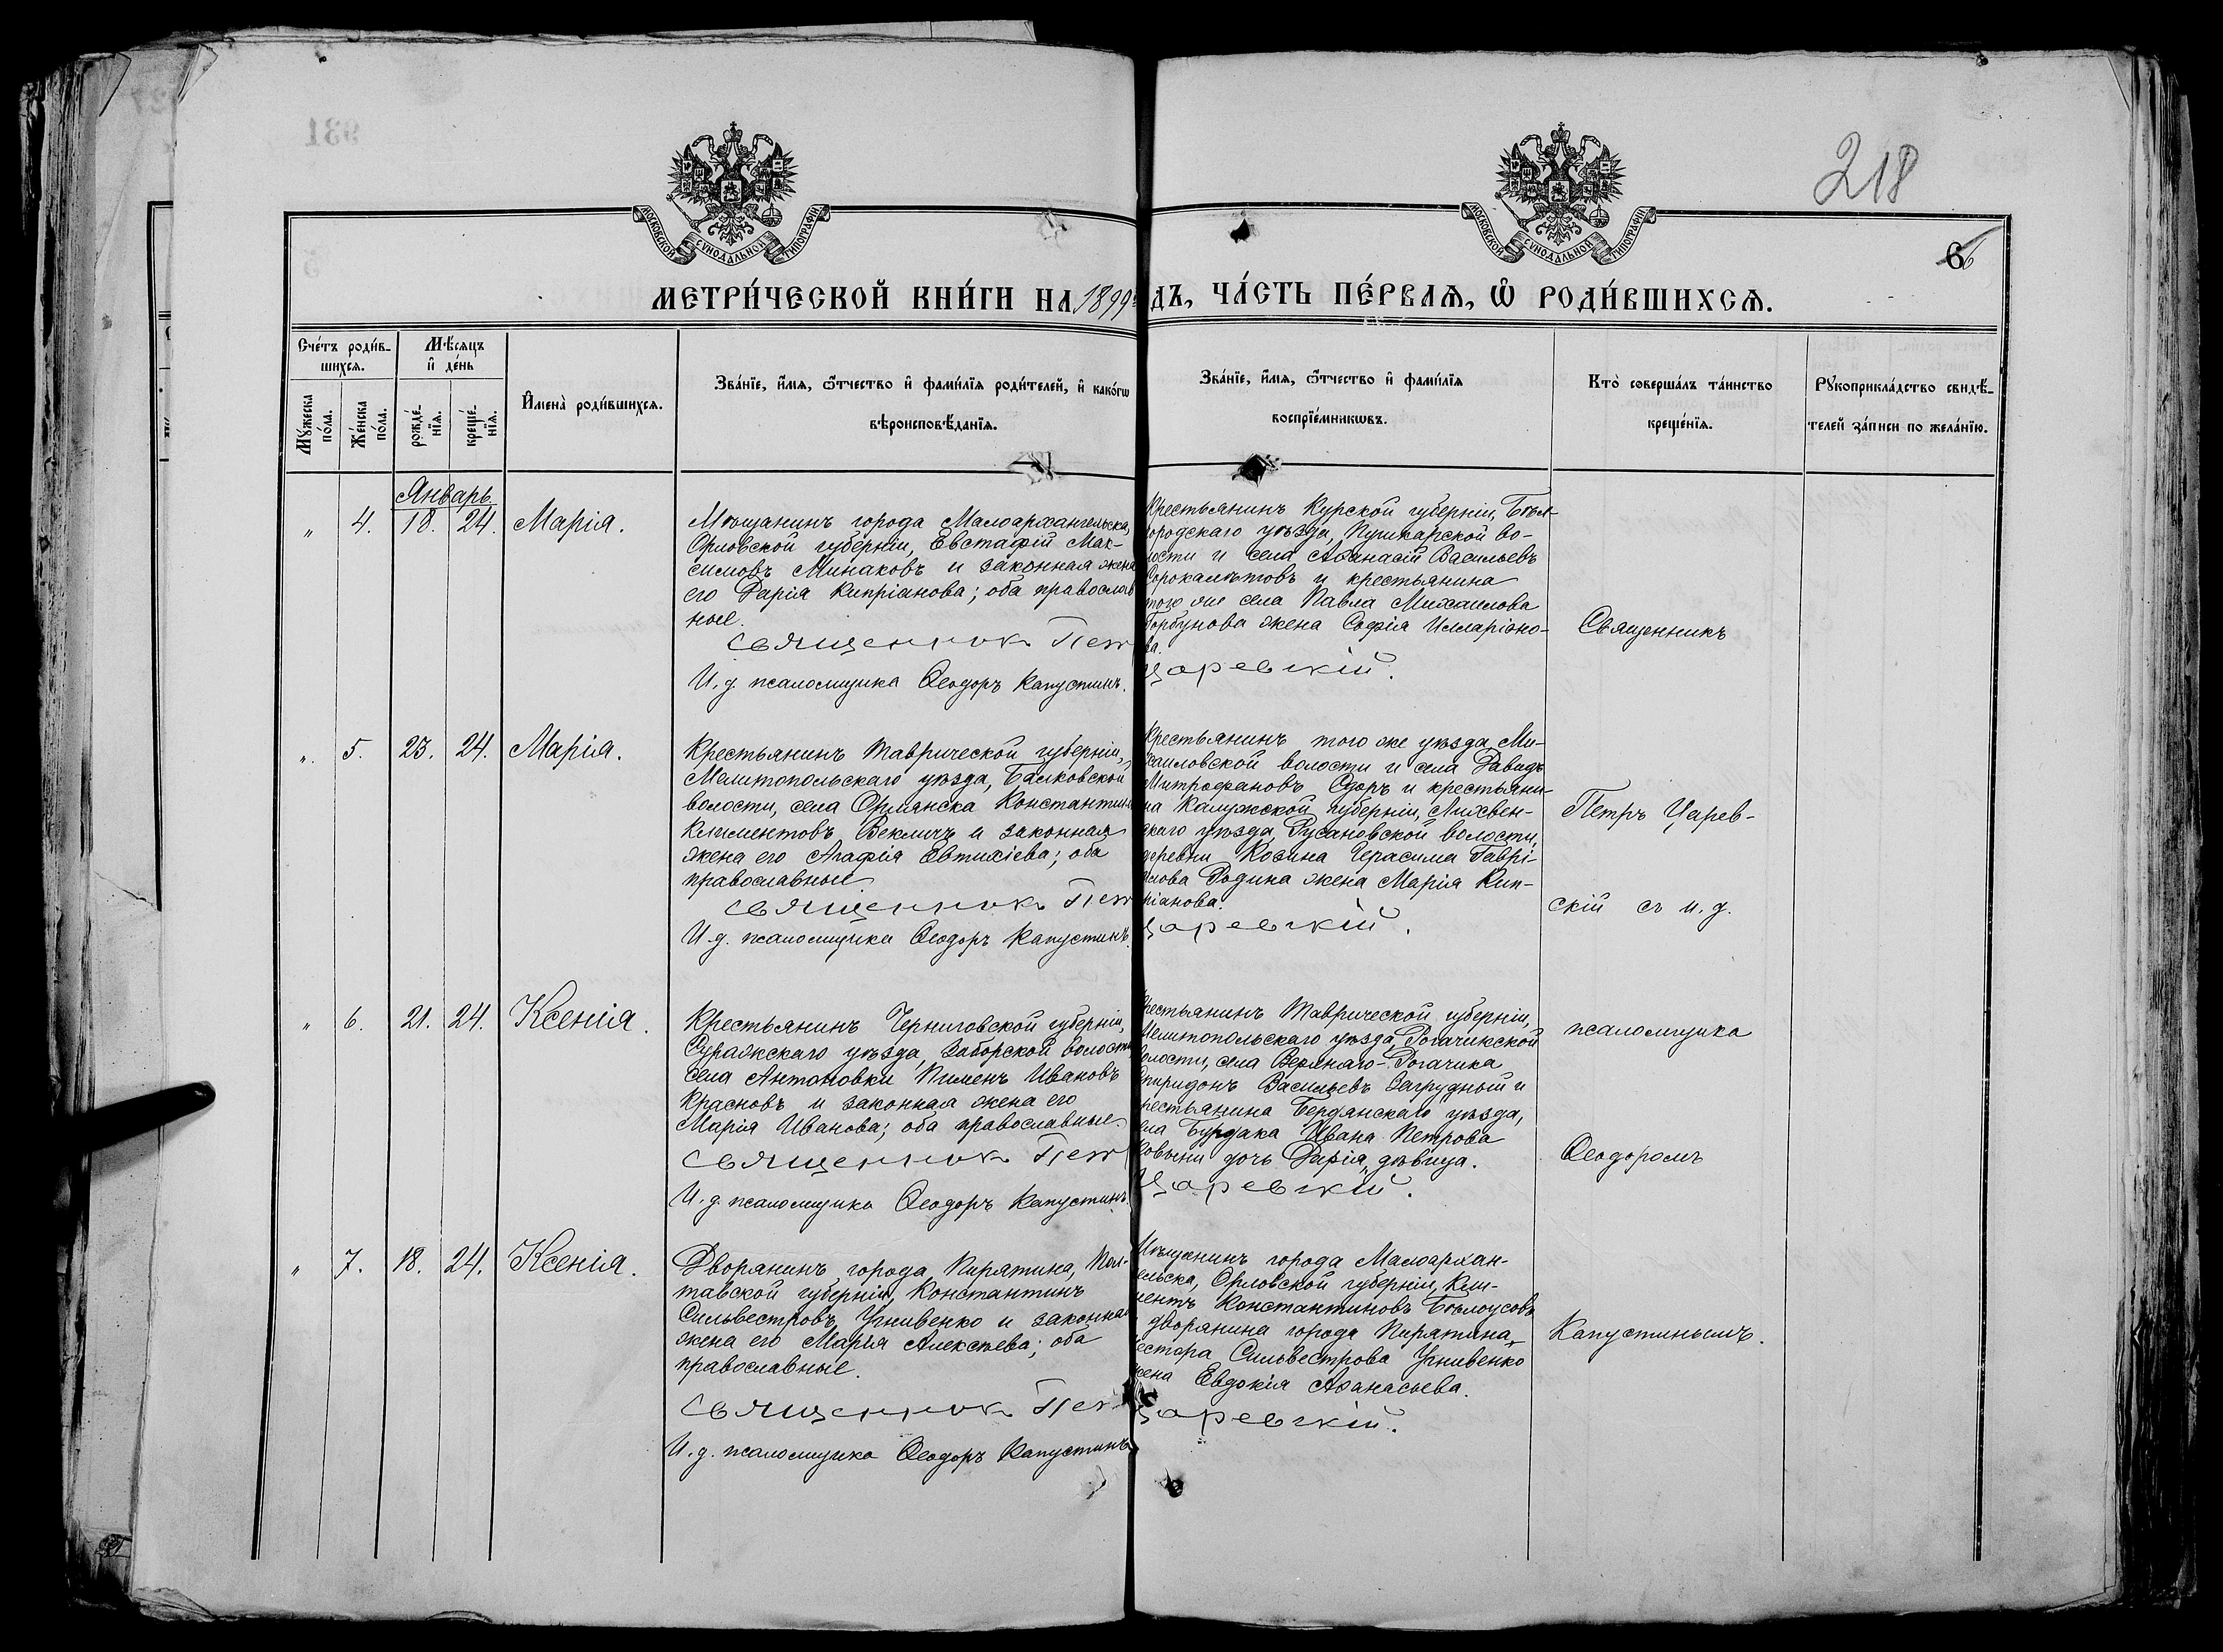 931
218
МОСКОВСКОЙ СѴНОДАЛЬНОЙ ТИПОГРАФІИ
МОСКОВСКОЙ СѴНОДАЛЬНОЙ ТИПОГРАФІИ
6
МЕТРИ́ЧЕСКОЙ КНИ́ГИ НА 1899 ДЪ, ЧА́СТЬ ПЕ́РВАЯ, Ѿ РОДИ́ВШИХСЯ.
Сче́тъ роди́в-
шихся.
Мꙋ́жеска по́ла.
Же́нска по́ла.
Мѣ́сяцъ
и де́нь
рожде́-
нїя.
креще́-
нїя.
Имена̀ роди́вшихся.
Зва́нїе, и́мя, ѻ́тчество и фами́лїя роди́телей, и како́гѡ
вѣроисповѣ́данїя.
Зва́нїе, и́мя, ѻ́тчество и фами́лїя
воспрїе́мникѡвъ.
Кто̀ соверша́лъ та́инство
креще́нїя.
Рꙋкоприкла́дство свидѣ́-
телей за́писи по жела́нїю.
Январь
„ 4. 18. 24. Марія.
Мѣщанинъ города Малоархангельска,
Орловской губерніи, Евстафій Мак-
симовъ Минаковъ и законная жена
его Дарія Кипріанова; оба православ
ные.
Священник Пет
И. д. псаломщика Ѳеодоръ Капустинъ.
Крестьянинъ Курской губерніи, Бѣл-
городскаго уѣзда, Пушкарской во-
лости и села Аѳанасій Васильевъ
Сорокалѣтовъ и крестьянина
того же села Павла Михаилова
Горбунова жена Софія Илларіоно-
ва.
Царевскій.
Священникъ
„ 5. 23. 24. Марія.
Крестьянинъ Таврической губерніи,
Мелитопольскаго уѣзда, Балковской
волости, села Орлянска Константин
Климентовъ Векличъ и законная
жена его Агафія Евтихіева; оба
православные
Священник Пет
И. д. псаломщика Ѳеодоръ Капустинъ.
Крестьянинъ того же уѣзда, Ми-
хаиловской волости и села Давидъ
Митрофановъ Сдоръ и крестьяни-
на Калужской губерніи, Лихвен-
скаго уѣзда, Русановской волости,
деревни Козина Герасима Гаврі-
илова Родина жена Марія Кип-
ріанова.
Царевскій.
Петръ Царев-
скій съ и. д.
„ 6. 21. 24. Ксенія.
Крестьянинъ Черниговской губерніи,
Суражскаго уѣзда, Заборской волости
села Антоновки Пименъ Ивановъ
Красновъ и законная жена его
Марія Иванова; оба православные.
Священник Пет
И. д. псаломщика Ѳеодоръ Капустинъ.
Крестьянинъ Таврической губерніи,
Мелитопольскаго уѣзда, Рогачикской
волости, села Верхняго-Рогачика
Спиридонъ Васильевъ Загрудный и
крестьянина Бердянскаго уѣзда,
села Бурдака Ивана Петрова
дочь Дарія, дѣвица.
Царевскій.
псаломщика
Ѳеодоромъ
„ 7. 18. 24. Ксенія.
Дворянинъ города Пирятина, Пол-
тавской губерніи, Константинъ
Сильвестровъ Угнивенко и законная
жена его Марія Алексѣева; оба
православные.
Священник Пет
И. д. псаломщика Ѳеодоръ Капустинъ
Мѣщанинъ города Малоархан-
гельска, Орловской губерніи, Кли-
ментъ Константиновъ Бѣлоусовъ
дворянина города Пирятина,
Нестора Сильвестрова Угнивенко
жена Евдокія Аѳанасьева.
Царевскій.
Капустинымъ.